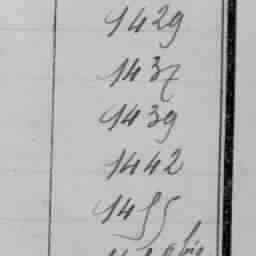 1429
1437
1439
1442
1455